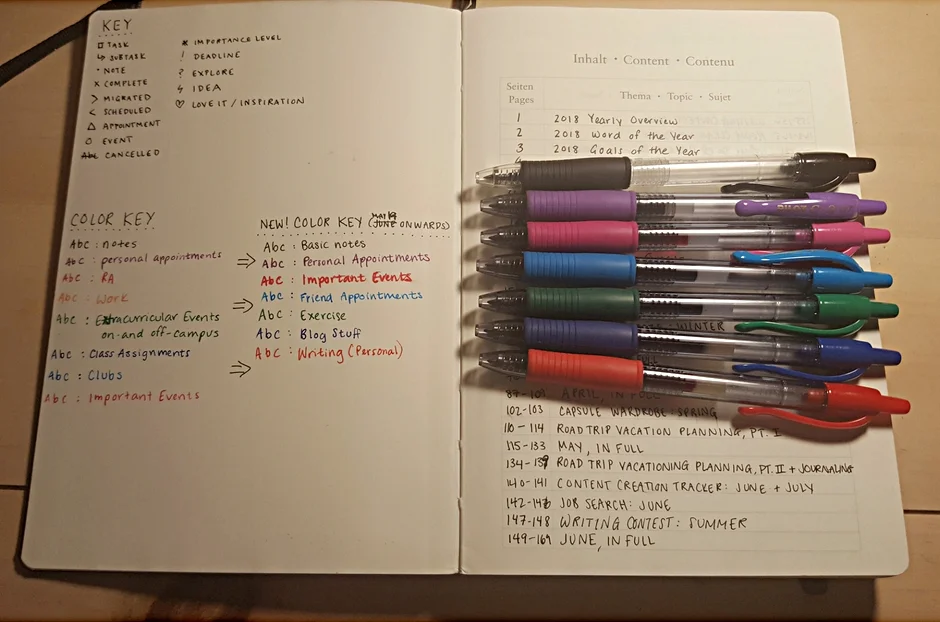 KEY
□ TASK
↳ SUBTASK
· NOTE
x COMPLETE
> MIGRATED
< SCHEDULED
△ APPOINTMENT
○ EVENT
Abc CANCELLED
* IMPORTANCE LEVEL
! DEADLINE
? EXPLORE
ϟ IDEA
♡ LOVE IT / INSPIRATION
COLOR KEY
Abc : notes
Abc : personal appointments
Abc : RA
Abc : Work
Abc : Extracurricular Events
on-and off-campus
Abc : Class Assignments
Abc : Clubs
Abc : Important Events
NEW! COLOR KEY (JUNE ONWARDS)
Abc : Basic notes
Abc : Personal Appointments
Abc : Important Events
Abc : Friend Appointments
Abc : Exercise
Abc : Blog Stuff
Abc : Writing (Personal)
Inhalt · Content · Contenu
Seiten
Pages
Thema · Topic · Sujet
1 2018 Yearly Overview
2 2018 Word of the Year
3 2018 Goals of the Year
PILOT
WINTER
APRIL, IN FULL
102-103 CAPSULE WARDROBE: SPRING
110-114 ROAD TRIP VACATION PLANNING, PT. I
115-133 MAY, IN FULL
134-139 ROAD TRIP VACATIONING PLANNING, PT. II + JOURNALING
140-141 CONTENT CREATION TRACKER: JUNE + JULY
142-146 JOB SEARCH: JUNE
147-148 WRITING CONTEST: SUMMER
149-169 JUNE, IN FULL